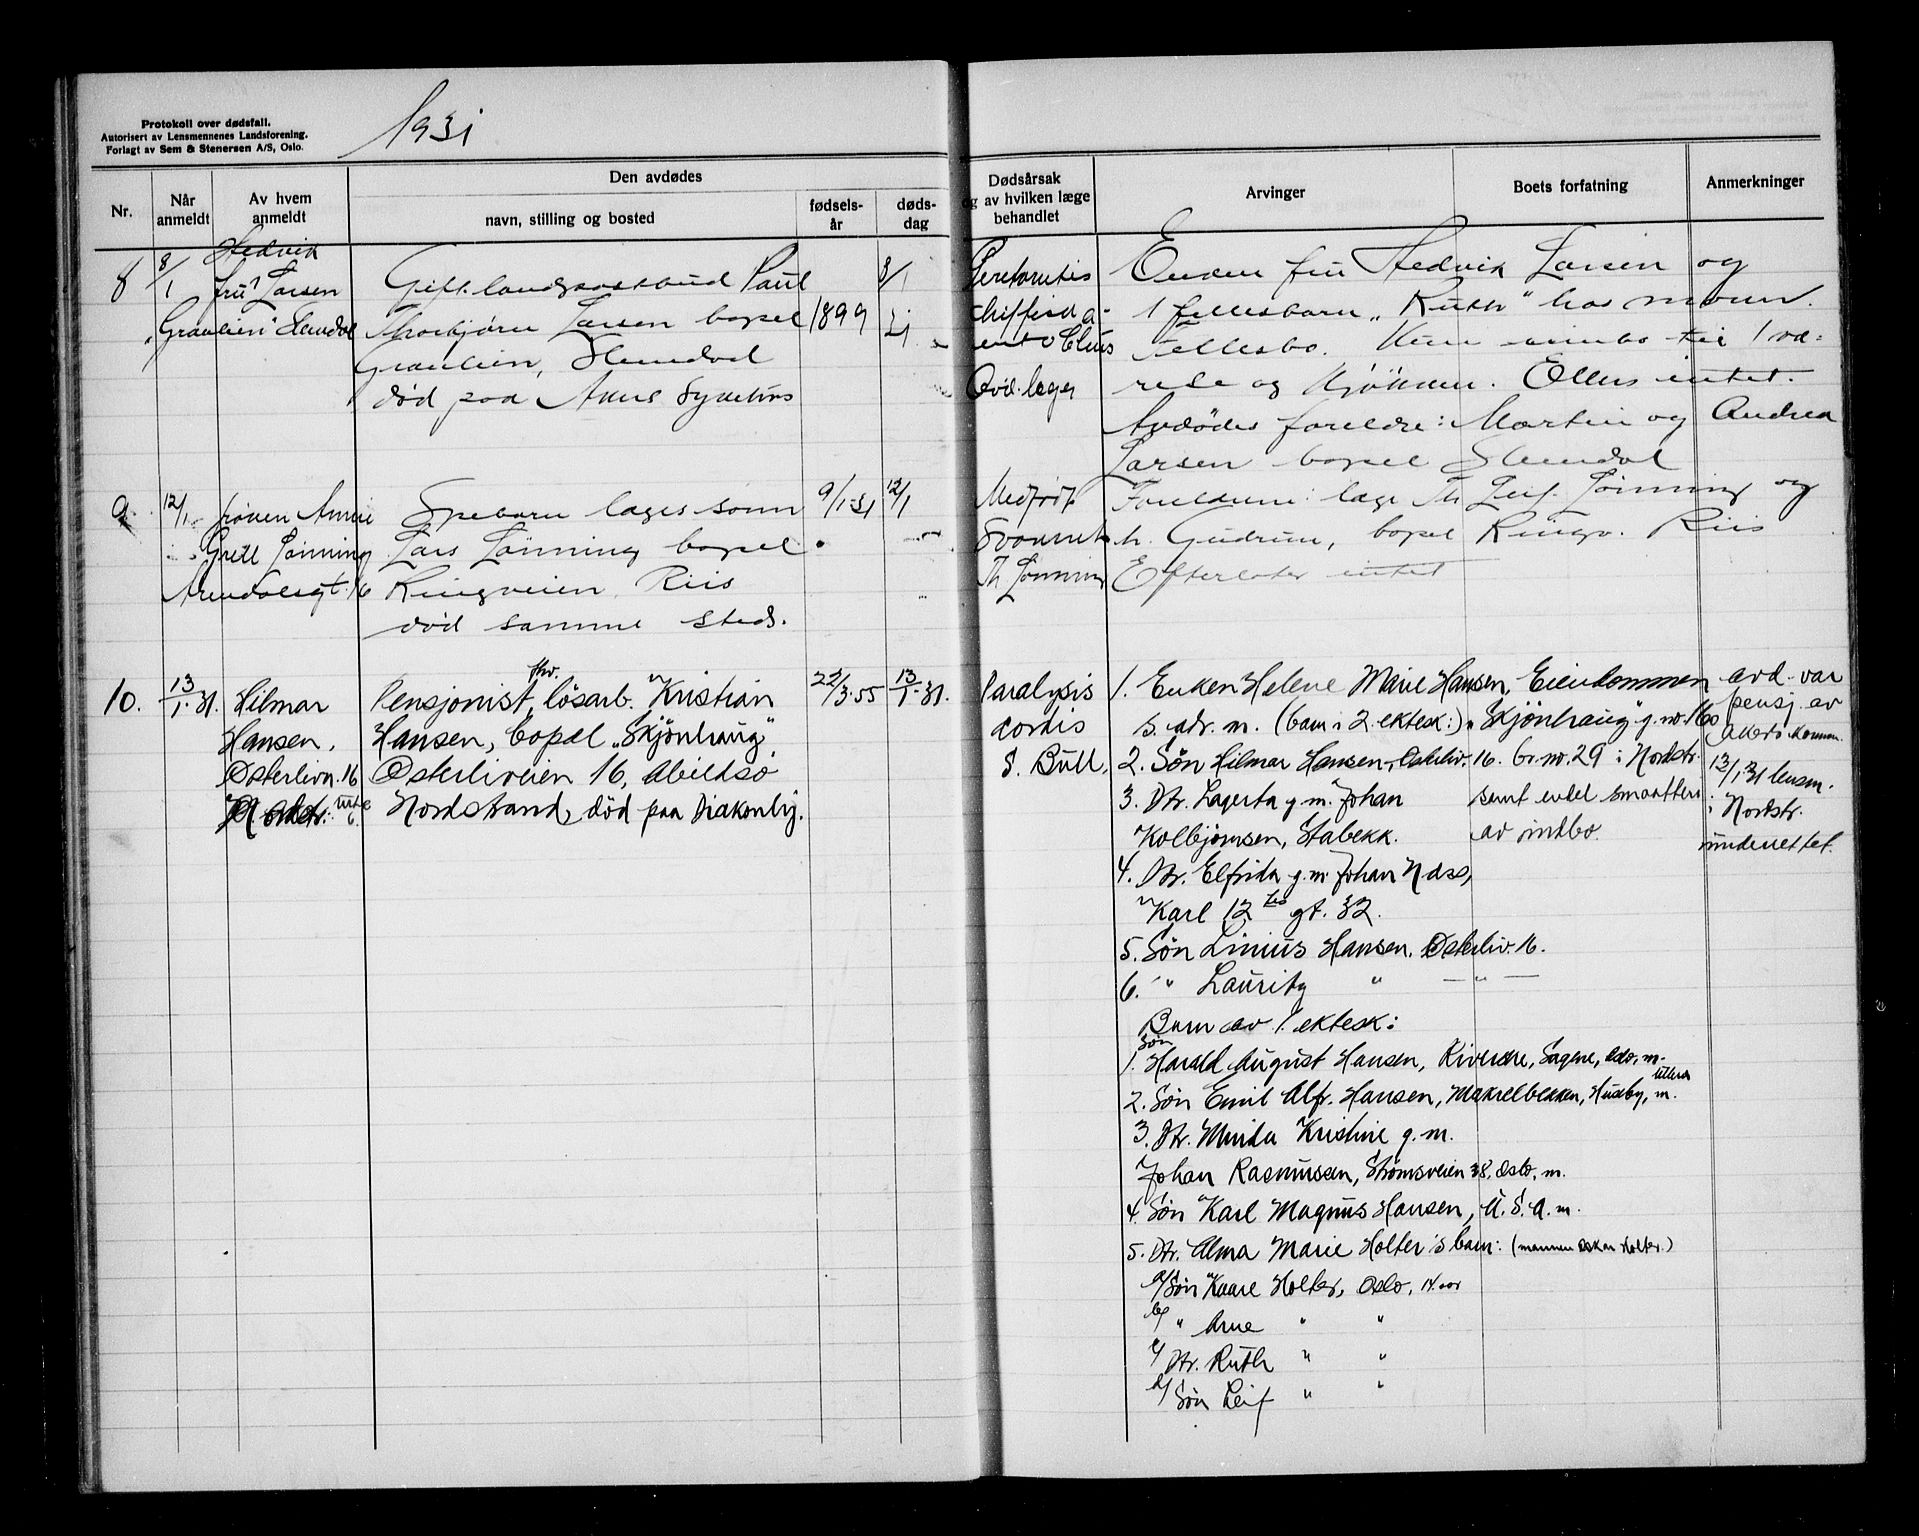 Protokoll over dødsfall.
Autorisert av Lensmennenes Landsforening.
Forlagt av Sem & Stenersen A/S, Oslo.
1931
Nr.
Når anmeldt
Av hvem anmeldt
Den avdødes
navn, stilling og bosted
fødsels-år
døds-dag
Dødsårsak
og av hvilken læge
behandlet
Arvinger
Boets forfatning
Anmerkninger
8
8/1
Hedvik
fru Larsen
Gift. Paul
Thorbjørn Larsen bopel
død paa
1899
8/1
31
Enken fru Hedvik Larsen og
1 fellesbarn "Ruth" hos moren.
Fellesbo. Kun innbo til 1 væ-
relse og kjøkken. Ellers intet.
Avdødes foreldre: Martin og Andrea
Larsen bopel Slemdal
9
12/1
frøken Annie
Grete Lönning
Arendalsgt. 16
Spebarn læges sønn
Lars Lönning bopel
Ringveien Riis
død samme sted.
9/1-31
12/1
Medfødt
Th Lönning
Foreldrene: læge Th Leif Lönning og
h. Gudrun, bopel Ringv. Riis
Efterlater intet
10.
13/1-31.
Hilmar
Hansen,
Østerlivn. 16
Nordstr.
fhv.
Pensjonist, løsarb. Kristian
Hansen, bopæl "Skjönhaug",
Østerliveien 16, Abildsø
Nordstrand, död paa Diakonhj.
22/3-55
13/1-31.
Paralysis
cordis
S. Bull.
1. Enken Helene Marie Hansen,
s. adr. m. (barn i 2 ektesk:)
2. Søn Hilmar Hansen, Østerliv. 16.
3. Dtr. Lagerta g.m. Johan
Kolbjørnsen, Stabekk.
4. Dtr. Elfrida g.m. Johan Næss,
Karl 12tes gt. 32.
5. Søn Linius Hansen. Østerliv. 16.
6. " Lauritz " — " —
Barn av 1. ektesk:
1. Søn Harald August Hansen, Sagene, Oslo, m.
2. Søn Emil Alfr. Hansen, Makrelbekken, Husby, m.
3. Dtr. Minda Kristine g.m.
Johan Rasmussen, Strømsveien 38, Oslo, m.
4. Søn Karl Magnus Hansen, U.S.A. m.
5. Dtr. Alma Marie Holter's barn: (mannen Oskar Holter.)
a/ Søn Kaare Holter, Oslo, 14 aar
b/ " Arne " "
c/ Dtr. Ruth " "
d/ Søn Leif " "
Eiendommen
"Skjönhaug" g.no. 160
br.no. 29 i Nordstr.
samt endel smaatteri
av indbo.
avd. var
pensj. av
Akers komm.
13/1-31 lensm.
i Nordstr.
underrettet.